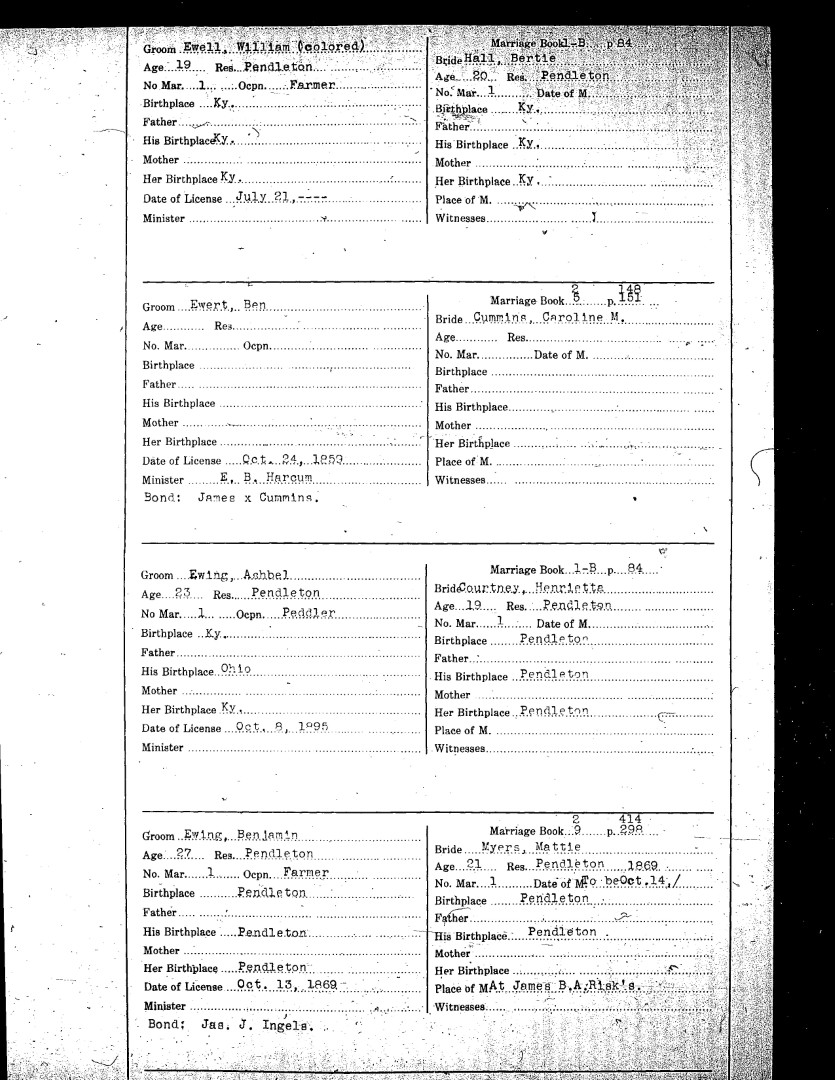 Groom Ewell, William (colored)
Age 19 Res. Pendleton
No Mar. 1 Ocpn. Farmer
Birthplace Ky.
Father
His Birthplace Ky.
Mother
Her Birthplace Ky.
Date of License July 21,----
Minister
Marriage Book 1-B p 84
Bride Hall, Bertie
Age 20 Res. Pendleton
No. Mar. 1 Date of M.
Birthplace Ky.
Father
His Birthplace Ky.
Mother
Her Birthplace Ky.
Place of M.
Witnesses
Groom Ewert, Ben
Age Res.
No. Mar. Ocpn.
Birthplace
Father
His Birthplace
Mother
Her Birthplace
Date of License Oct. 24, 1859
Minister E. B. Harcum
Bond: James x Cummins.
2 148
Marriage Book 5 p. 151
Bride Cummins, Caroline M.
Age Res.
No. Mar. Date of M.
Birthplace
Father
His Birthplace
Mother
Her Birthplace
Place of M.
Witnesses
Groom Ewing, Ashbel
Age 23 Res. Pendleton
No Mar. 1 Ocpn. Peddler
Birthplace Ky.
Father
His Birthplace Ohio
Mother
Her Birthplace Ky.
Date of License Oct. 8, 1895
Minister
Marriage Book 1-B p. 84
Bride Courtney, Henrietta
Age 19 Res. Pendleton
No. Mar. 1 Date of M.
Birthplace Pendleton
Father
His Birthplace Pendleton
Mother
Her Birthplace Pendleton
Place of M.
Witnesses
Groom Ewing, Benjamin
Age 27 Res. Pendleton
No. Mar. 1 Ocpn. Farmer
Birthplace Pendleton
Father
His Birthplace Pendleton
Mother
Her Birthplace Pendleton
Date of License Oct. 13, 1869
Minister
Bond: Jas. J. Ingels.
2 414
Marriage Book 9 p. 298
Bride Myers, Mattie
Age 21 Res. Pendleton 1869
No. Mar. 1 Date of M To be Oct. 14,/
Birthplace Pendleton
Father
His Birthplace Pendleton
Mother
Her Birthplace
Place of M At James B.A. Risk's.
Witnesses